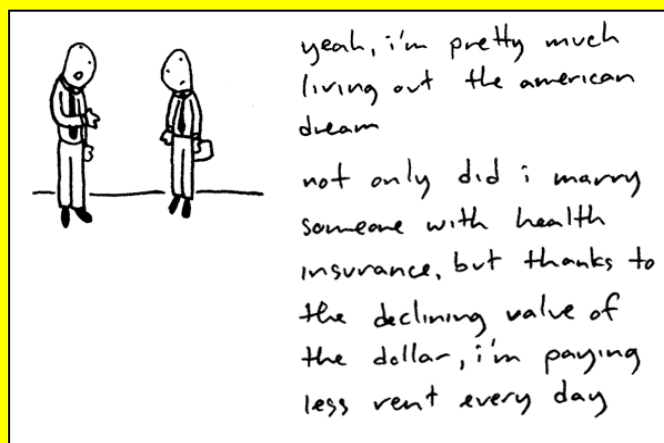 yeah, i'm pretty much
living out the american
dream
not only did i marry
someone with health
insurance, but thanks to
the declining value of
the dollar, i'm paying
less rent every day